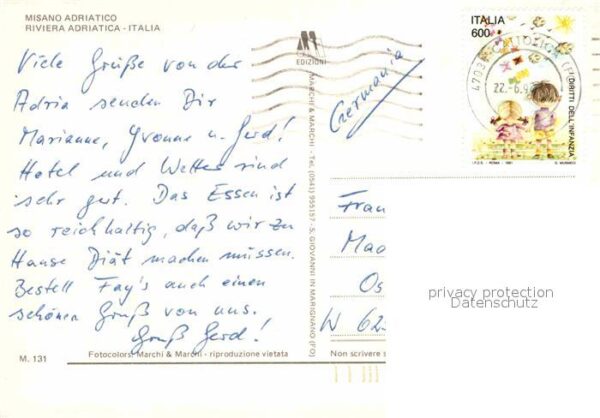 MISANO ADRIATICO
RIVIERA ADRIATICA - ITALIA
Viele Grüße von der
Adria senden Dir
Marianne, Yvonne u. Gerd!
Hotel und Wetter sind
sehr gut. Das Essen ist
so reichhaltig, daß wir zu
Hause Diät machen müssen.
Bestell Fay's auch einen
schönen Gruß von uns.
Gruß Gerd!
M. 131
Fotocolors: Marchi & Marchi - riproduzione vietata
EDIZIONI
MARCHI & MARCHI - Tel. (0541) 955157 - S. GIOVANNI IN MARIGNANO (FO)
Germania
ITALIA
600
I DIRITTI DELL'INFANZIA
I.P.Z.S. - ROMA - 1991
47033 CATTOLICA
22.-6.9
Frau
Maa
Os
W 622
privacy protection
Datenschutz
Non scrivere s